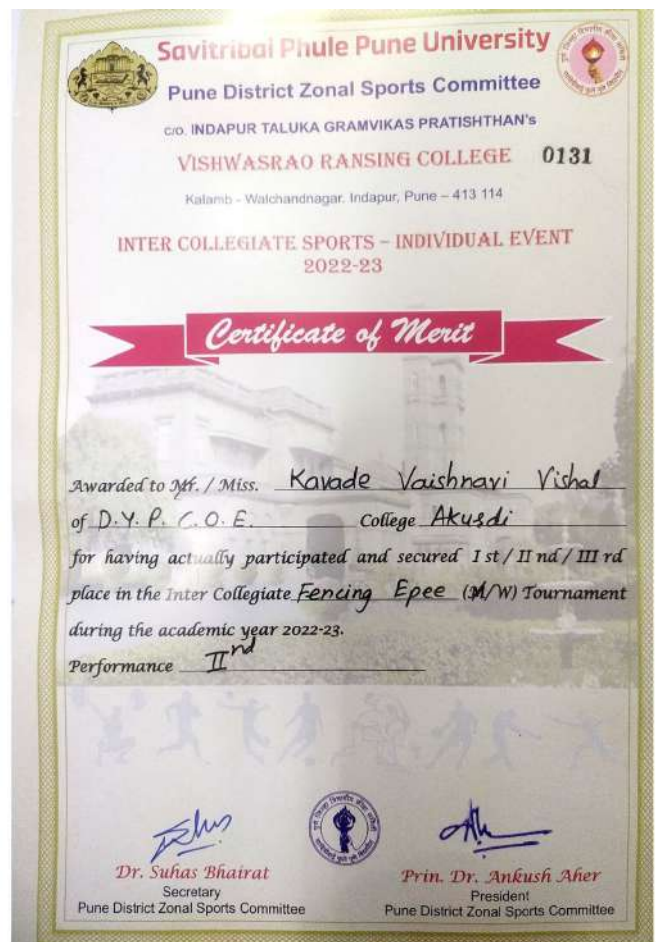 Savitribai Phule Pune University
Pune District Zonal Sports Committee
C/O. INDAPUR TALUKA GRAMVIKAS PRATISHTHAN's
VISHWASRAO RANSING COLLEGE 0131
Kalamb - Walchandnagar. Indapur, Pune – 413 114
INTER COLLEGIATE SPORTS – INDIVIDUAL EVENT
2022-23
Certificate of Merit
Awarded to Mr. / Miss. Kavade Vaishnavi Vishal
of D.Y. P. C. O. E. College Akurdi
for having actually participated and secured I st / II nd / III rd
place in the Inter Collegiate Fencing Epee (M/W) Tournament
during the academic year 2022-23.
Performance IInd
Dr. Suhas Bhairat
Secretary
Pune District Zonal Sports Committee
Prin. Dr. Ankush Aher
President
Pune District Zonal Sports Committee